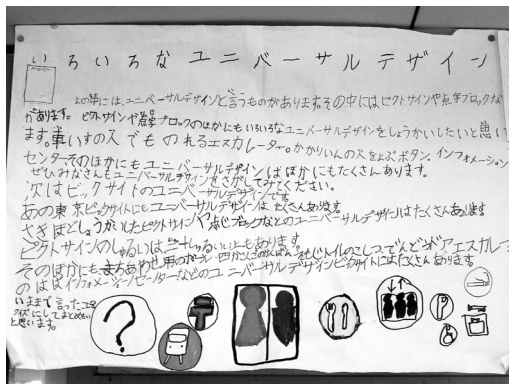 いろいろなユニバーサルデザイン
よの中には、ユニバーサルデザインと言うものがあります。その中にはピクトサインや点字ブロックな
があります。ピクトサインや点字ブロックのほかにもいろいろなユニバーサルデザインをしょうかいしたいと思い
ます。車いすの人でものれるエスカレーター。かかりいんの人をよぶボタン、インフォメーション
センターそのほかにもユニバーサルデザインはほかにもたくさんあります。
ぜひみなさんもユニバーサルデザインをさがしてみてください。
次はビックサイトのユニバーサルデザインです。
あの東京ビックサイトにもユニバーサルデザインはたくさんあります
さきほどしょうかいしたピクトサインや点じブロックなどのユニバーサルデザインはたくさんあります
ピクトサインのしゅるいは しゅるいいじょうもあります。
そのほかにも エスカレー
のほかインフォメーションセンターなどのユニバーサルデザインビックサイトにはたくさんあります
いままで言ったことを
クイズにしてまとめたい
と思います。
?